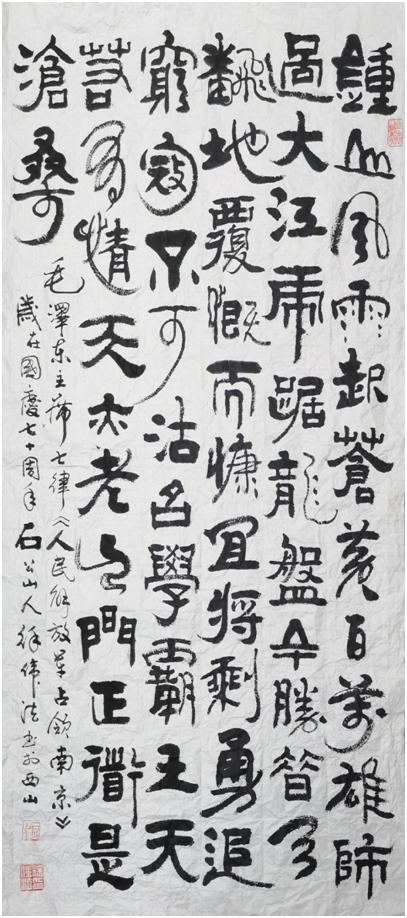 鍾山風雨起蒼黃百萬雄師
過大江虎踞龍盤今勝昔天
飜地覆慨而慷宜將剩勇追
窮寇不可沽名學霸王天
若有情天亦老人間正道是
滄桑
毛澤東主席七律《人民解放軍占領南京》
歲在國慶七十周年石公山人徐偉法書於西山